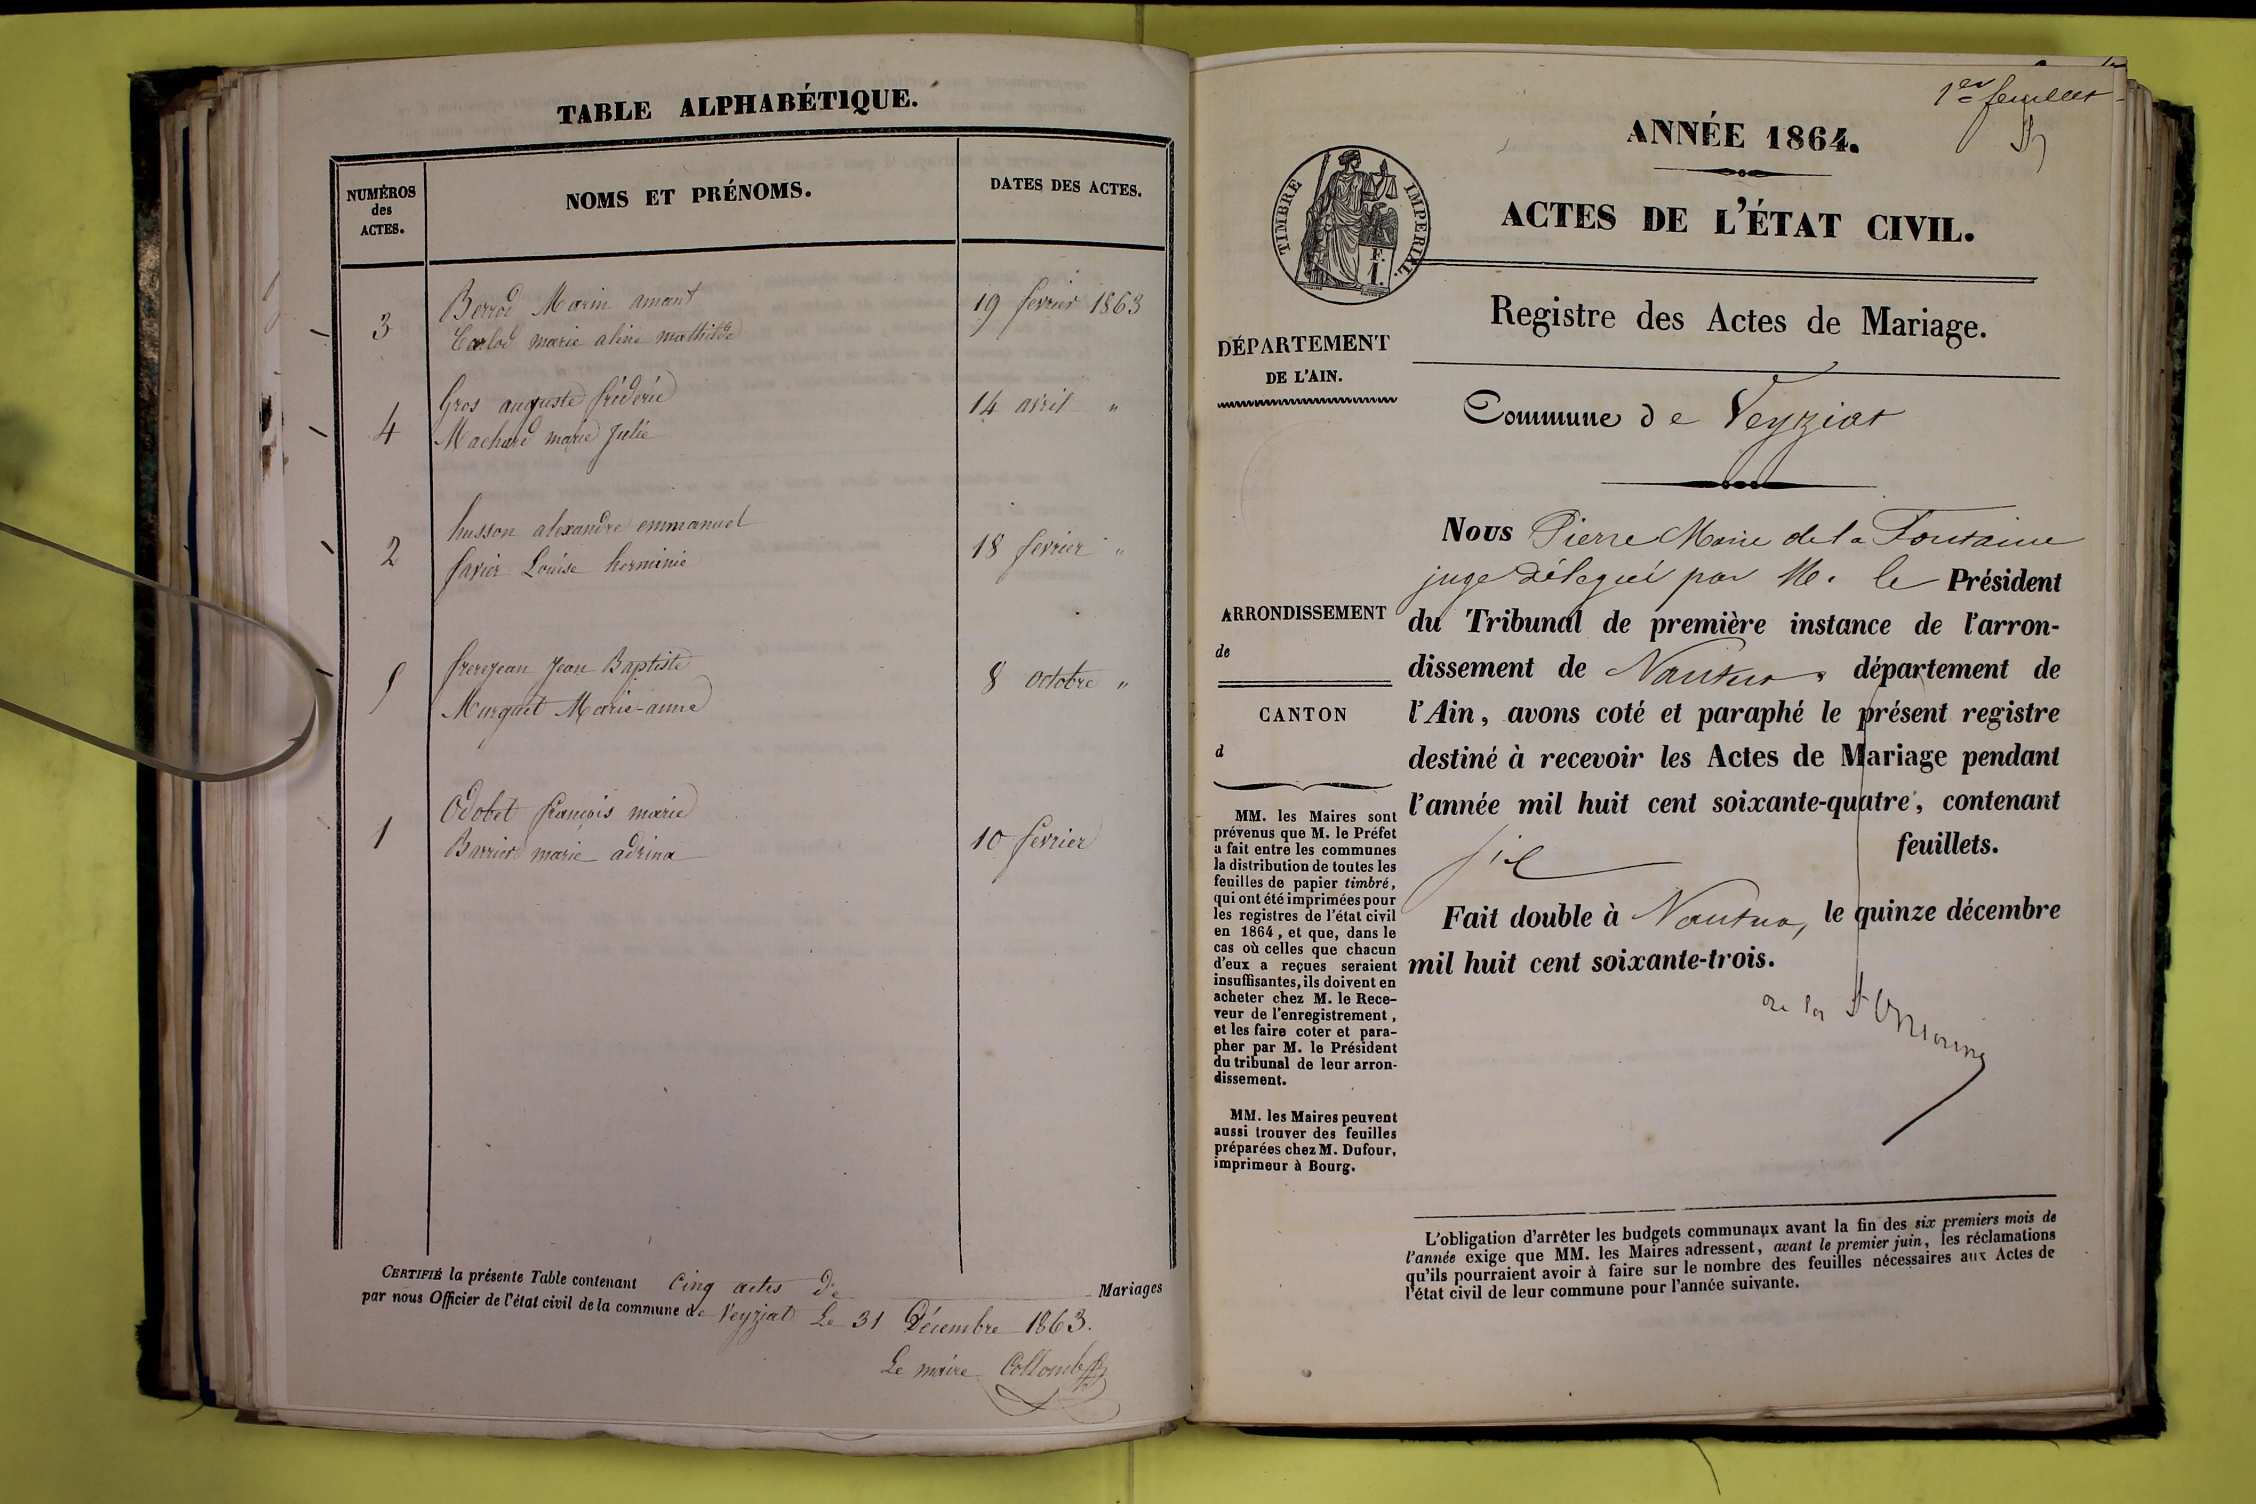 TABLE ALPHABÉTIQUE.
NUMÉROS
des
ACTES.
NOMS ET PRÉNOMS.
DATES DES ACTES.
3
Berrod Marin amant
Carlod marie aline mathilde
19 fevrier 1863
4
Gros auguste fréderic
Machard marie Julie
14 avril "
2
husson alexandre emmanuel
favier Louise herminie
18 fevrier "
5
frerejean Jean Baptiste
Murquet Marie-anne
8 octobre "
1
Odobet francois marie
Barrier marie adrina
10 fevrier
CERTIFIÉ la présente Table contenant cinq actes de Mariages
par nous Officier de l'état civil de la commune de Veyziat Le 31 Décembre 1863.
Le maire Collomb
1er feuillet
ANNÉE 1864.
TIMBRE IMPÉRIAL.
F.
1.
ACTES DE L'ÉTAT CIVIL.
Registre des Actes de Mariage.
DÉPARTEMENT
DE L'AIN.
Commune de Veyziat
ARRONDISSEMENT
de
CANTON
d
MM. les Maires sont
prévenus que M. le Préfet
a fait entre les communes
la distribution de toutes les
feuilles de papier timbré,
qui ont été imprimées pour
les registres de l'état civil
en 1864, et que, dans le
cas où celles que chacun
d'eux a reçues seraient
insuffisantes, ils doivent en
acheter chez M. le Rece-
veur de l'enregistrement,
et les faire coter et para-
pher par M. le Président
du tribunal de leur arron-
dissement.
MM. les Maires peuvent
aussi trouver des feuilles
préparées chez M. Dufour,
imprimeur à Bourg.
Nous Pierre Marie de la Fontaine
juge délégué par M. le Président
du Tribunal de première instance de l'arron-
dissement de Nantua, département de
l'Ain, avons coté et paraphé le présent registre
destiné à recevoir les Actes de Mariage pendant
l'année mil huit cent soixante-quatre, contenant
six feuillets.
Fait double à Nantua, le quinze décembre
mil huit cent soixante-trois.
de la Fontaine
L'obligation d'arrêter les budgets communaux avant la fin des six premiers mois de
l'année exige que MM. les Maires adressent, avant le premier juin, les réclamations
qu'ils pourraient avoir à faire sur le nombre des feuilles nécessaires aux Actes de
l'état civil de leur commune pour l'année suivante.